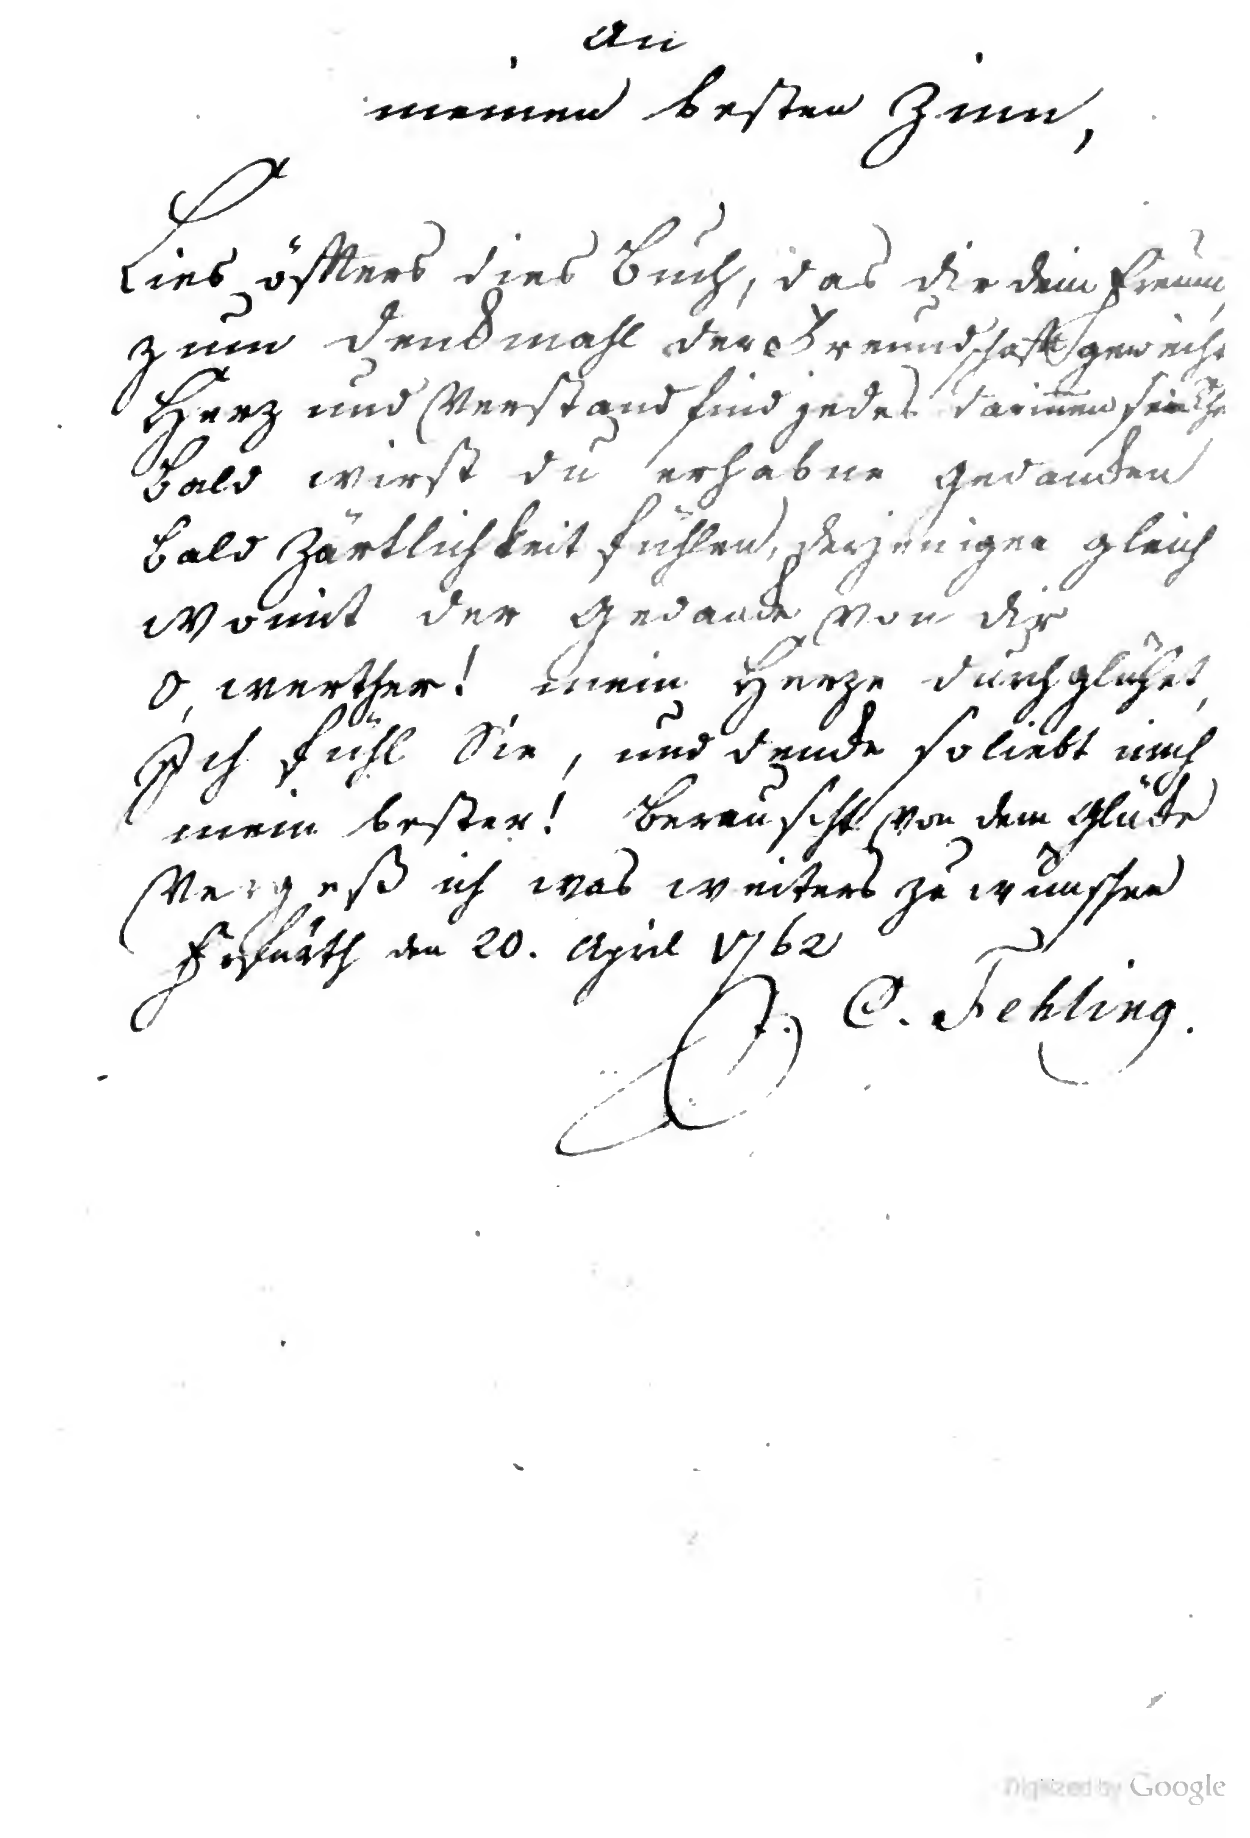 An
meinen besten Zinn,
Lies öffters dies Buch, das dir dein Freund
zum Denckmahl der Freundschafft geweiht
Herz und Verstand find jedes darinnen sein
Bald wirst du erhabne Gedancken
bald Zärtlichkeit fühlen, derjenigen gleich
womit der Gedancke von dir
O, werther! mein Herze durchglühet,
Ich fühl Sie, und dencke so liebt mich
mein bester! Berauscht von dem Glücke
Vergeß ich was weiters zu wünschen
den 20. April 1762
J. C. Fehling.
Digitized by Google